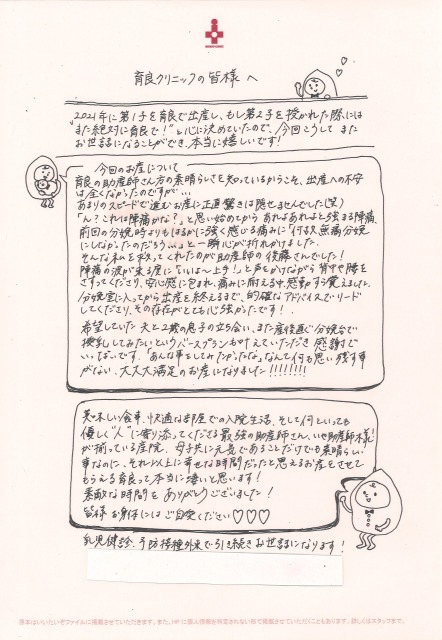 育良クリニックの皆様へ
"2021年に第1子を育良で出産し、もし第2子を授かれた際には
また絶対に育良で!"と心に決めていたので、今回こうして また
お世話になることができ、本当に嬉しいです!
今回のお産について
育良の助産師さん方の素晴らしさを知っているからこそ、出産への不安
は全くなかったのですが...
あまりのスピードで進むお産に正直驚きは隠せませんでした(笑)
「ん?これは陣痛かな?」と思い始めてから あれよあれよと強まる陣痛。
前回の分娩時よりもはるかに強く感じる痛みに「何故無痛分娩
にしなかったのだろう...」と一瞬心が折れかけました。
そんな私を救ってくれたのが助産師の 後藤さんでした!
陣痛の波が来る度に「いいよ〜上手!」と声をかけながら 背中や腰を
さすってくださり、安心感に包まれ、痛みに耐える中、感動すら覚えました。
分娩室に入ってから出産を終えるまで、的確なアドバイスでリード
してくださり、その存在がとても心強かったです!
希望していた 夫と2歳の息子の立ち会い、また産後直ぐ分娩台で
授乳してみたいというバースプランも叶えていただき 感謝で
いっぱいです。「あんな事をしてみたかったな」なんて何も思い残す事
がない、大大大満足のお産になりました!!!!!!!
美味しい食事、快適なお部屋での入院生活、そして何といっても
優しく"人"に寄り添ってくださる 最強の助産師さん、いや助産師様!
が揃っている産院。母子共に元気であることだけでも素晴らしい
事なのに、それ以上に幸せな時間だったと思えるお産をさせて
もらえる育良って本当に凄いと思います!
素敵な時間をありがとうございました!
皆様 お身体にはご自愛ください♡♡♡
乳児健診、予防接種外来で引き続きお世話になります!
原本はいいたいぞファイルに掲載させていただきます。また、HPに個人情報を特定されない形で掲載させていただくこともあります。詳しくはスタッフまで。